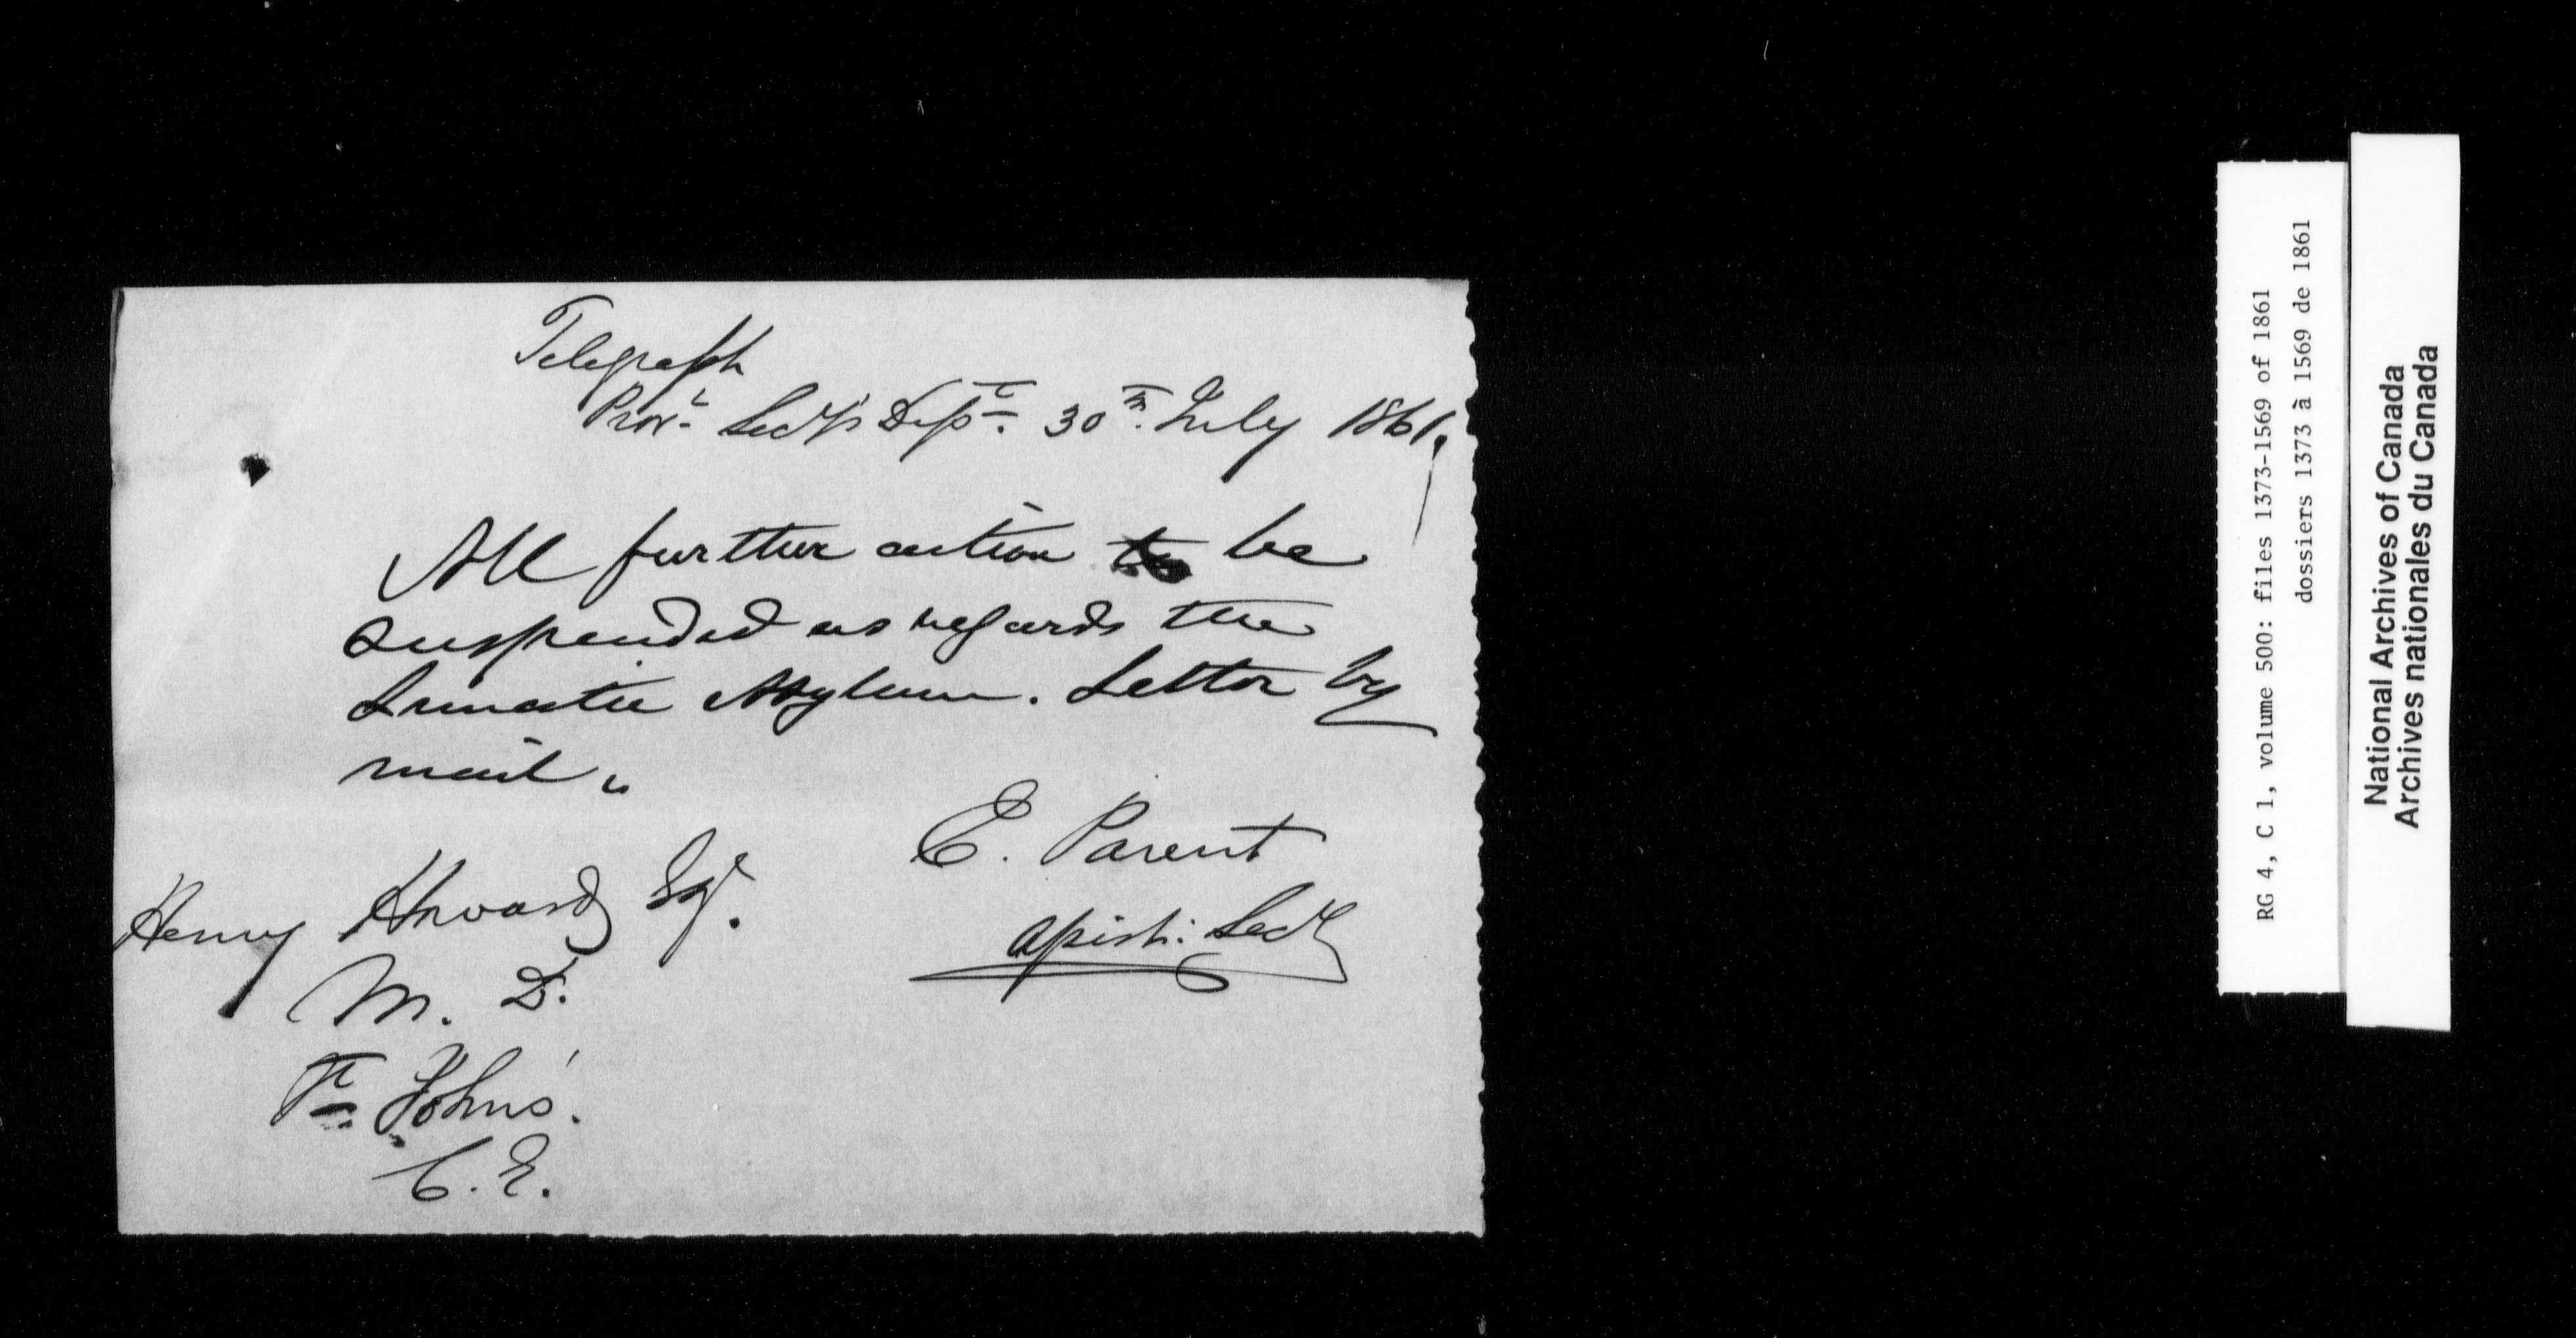 Telegraph
Provl Secy's Dept. 30th July 1861.
All further action to be
suspended as regards the
Lunatic Asylum. Letter by
mail.
E. Parent
Assist: Secy
Henry Howard Esqr.
M. D.
St Johns'.
C. E.
RG 4, C 1, volume 500: files 1373-1569 of 1861
dossiers 1373 à 1569 de 1861
National Archives of Canada
Archives nationales du Canada